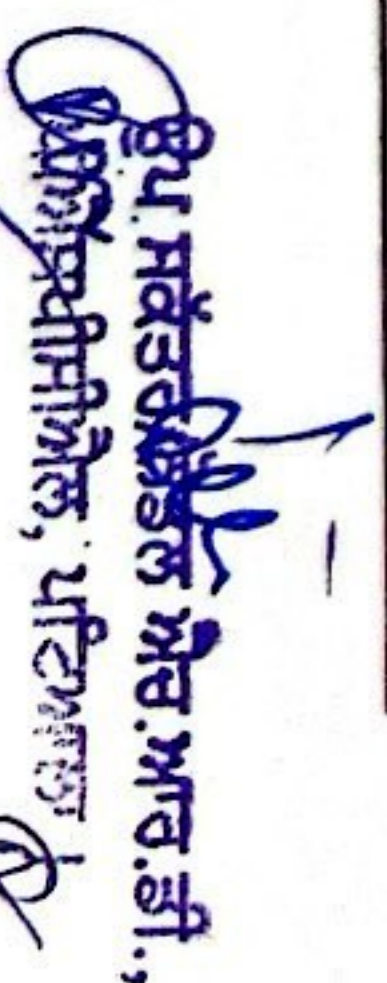 ਉਪ ਸਕੱਤਰ ਐਚ.ਆਰ.ਡੀ.,
ਪੀਐੱਸਪੀਸੀਐਲ, ਪਟਿਆਲਾ।